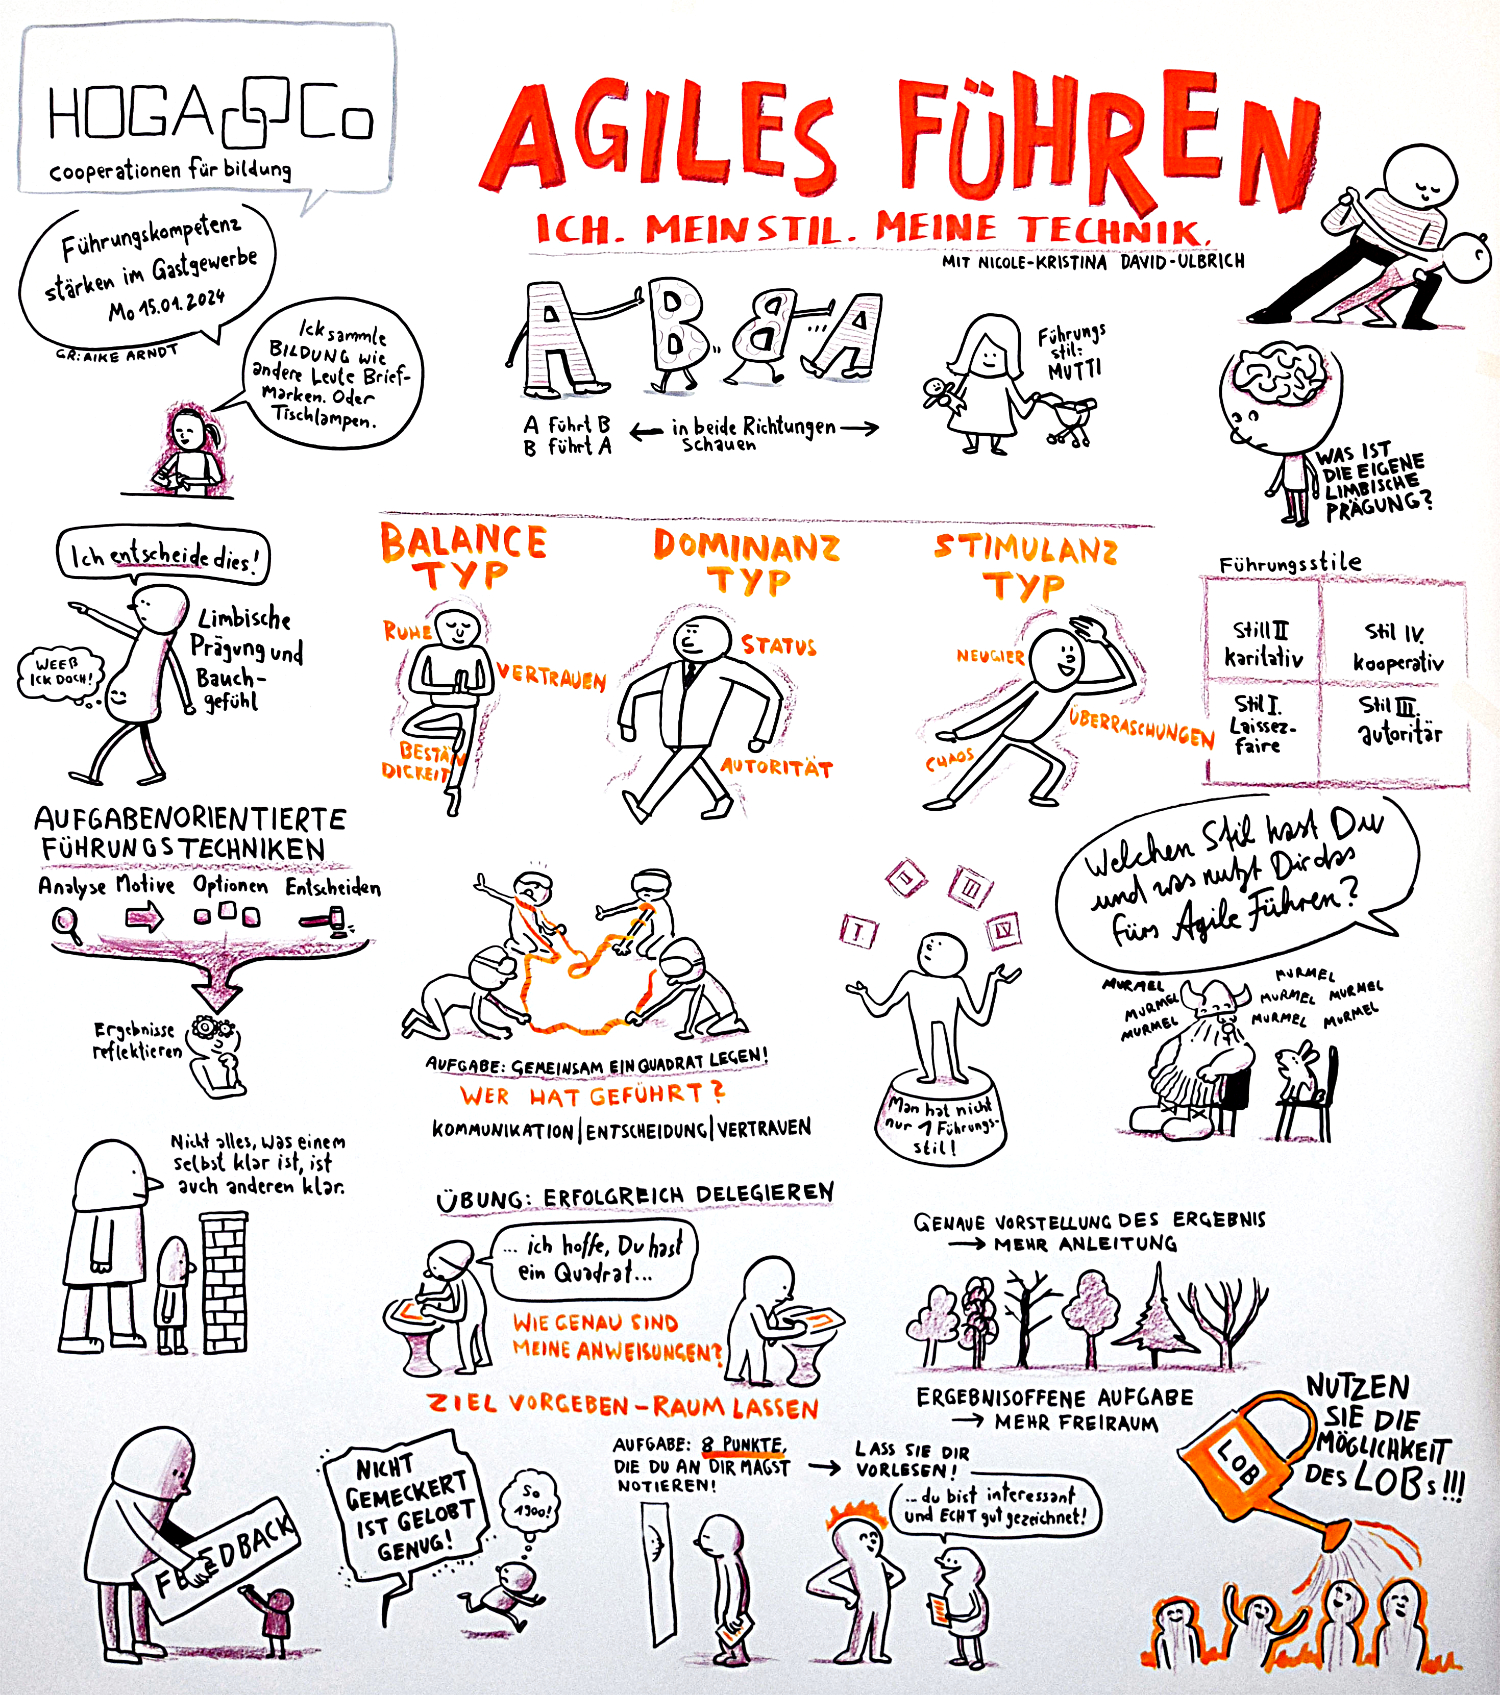 HOGA Co
cooperationen für bildung
Führungskompetenz
stärken im Gastgewerbe
Mo 15.01.2024
GR: AIKE ARNDT
AGILES FÜHREN
ICH. MEIN STIL. MEINE TECHNIK.
MIT NICOLE-KRISTINA DAVID-ULBRICH
Ick sammle
BILDUNG wie
andere Leute Brief-
marken. Oder
Tischlampen.
A B B A
A führt B
B führt A
in beide Richtungen
schauen
Führungs
stil:
MUTTI
WAS IST
DIE EIGENE
LIMBISCHE
PRÄGUNG?
Ich entscheide dies!
WEEß
ICK DOCH!
Limbische
Prägung und
Bauch-
gefühl
BALANCE
TYP
RUHE
VERTRAUEN
BESTÄN
DIGKEIT
DOMINANZ
TYP
STATUS
AUTORITÄT
STIMULANZ
TYP
NEUGIER
ÜBERRASCHUNGEN
CHAOS
Führungsstile
Still II
karitativ
Stil IV.
kooperativ
Stil I.
Laissez-
faire
Stil III.
autoritär
AUFGABENORIENTIERTE
FÜHRUNGSTECHNIKEN
Analyse Motive Optionen Entscheiden
Ergebnisse
reflektieren
AUFGABE: GEMEINSAM EIN QUADRAT LEGEN!
WER HAT GEFÜHRT?
KOMMUNIKATION|ENTSCHEIDUNG|VERTRAUEN
I. II III IV
Man hat nicht
nur 1 Führungs-
stil!
Welchen Stil hast Du
und was nutzt Dir das
fürs Agile Führen?
MURMEL
MURMEL
MURMEL
MURMEL
MURMEL MURMEL
MURMEL MURMEL
Nicht alles, was einem
selbst klar ist, ist
auch anderen klar.
ÜBUNG: ERFOLGREICH DELEGIEREN
... ich hoffe, Du hast
ein Quadrat...
WIE GENAU SIND
MEINE ANWEISUNGEN?
ZIEL VORGEBEN - RAUM LASSEN
GENAUE VORSTELLUNG DES ERGEBNIS
→ MEHR ANLEITUNG
ERGEBNISOFFENE AUFGABE
→ MEHR FREIRAUM
FEEDBACK
NICHT
GEMECKERT
IST GELOBT
GENUG!
So
1900!
AUFGABE: 8 PUNKTE,
DIE DU AN DIR MAGST
NOTIEREN!
→ LASS SIE DIR
VORLESEN!
... du bist interessant
und ECHT gut gezeichnet!
LOB
NUTZEN
SIE DIE
MÖGLICHKEIT
DES LOBs!!!